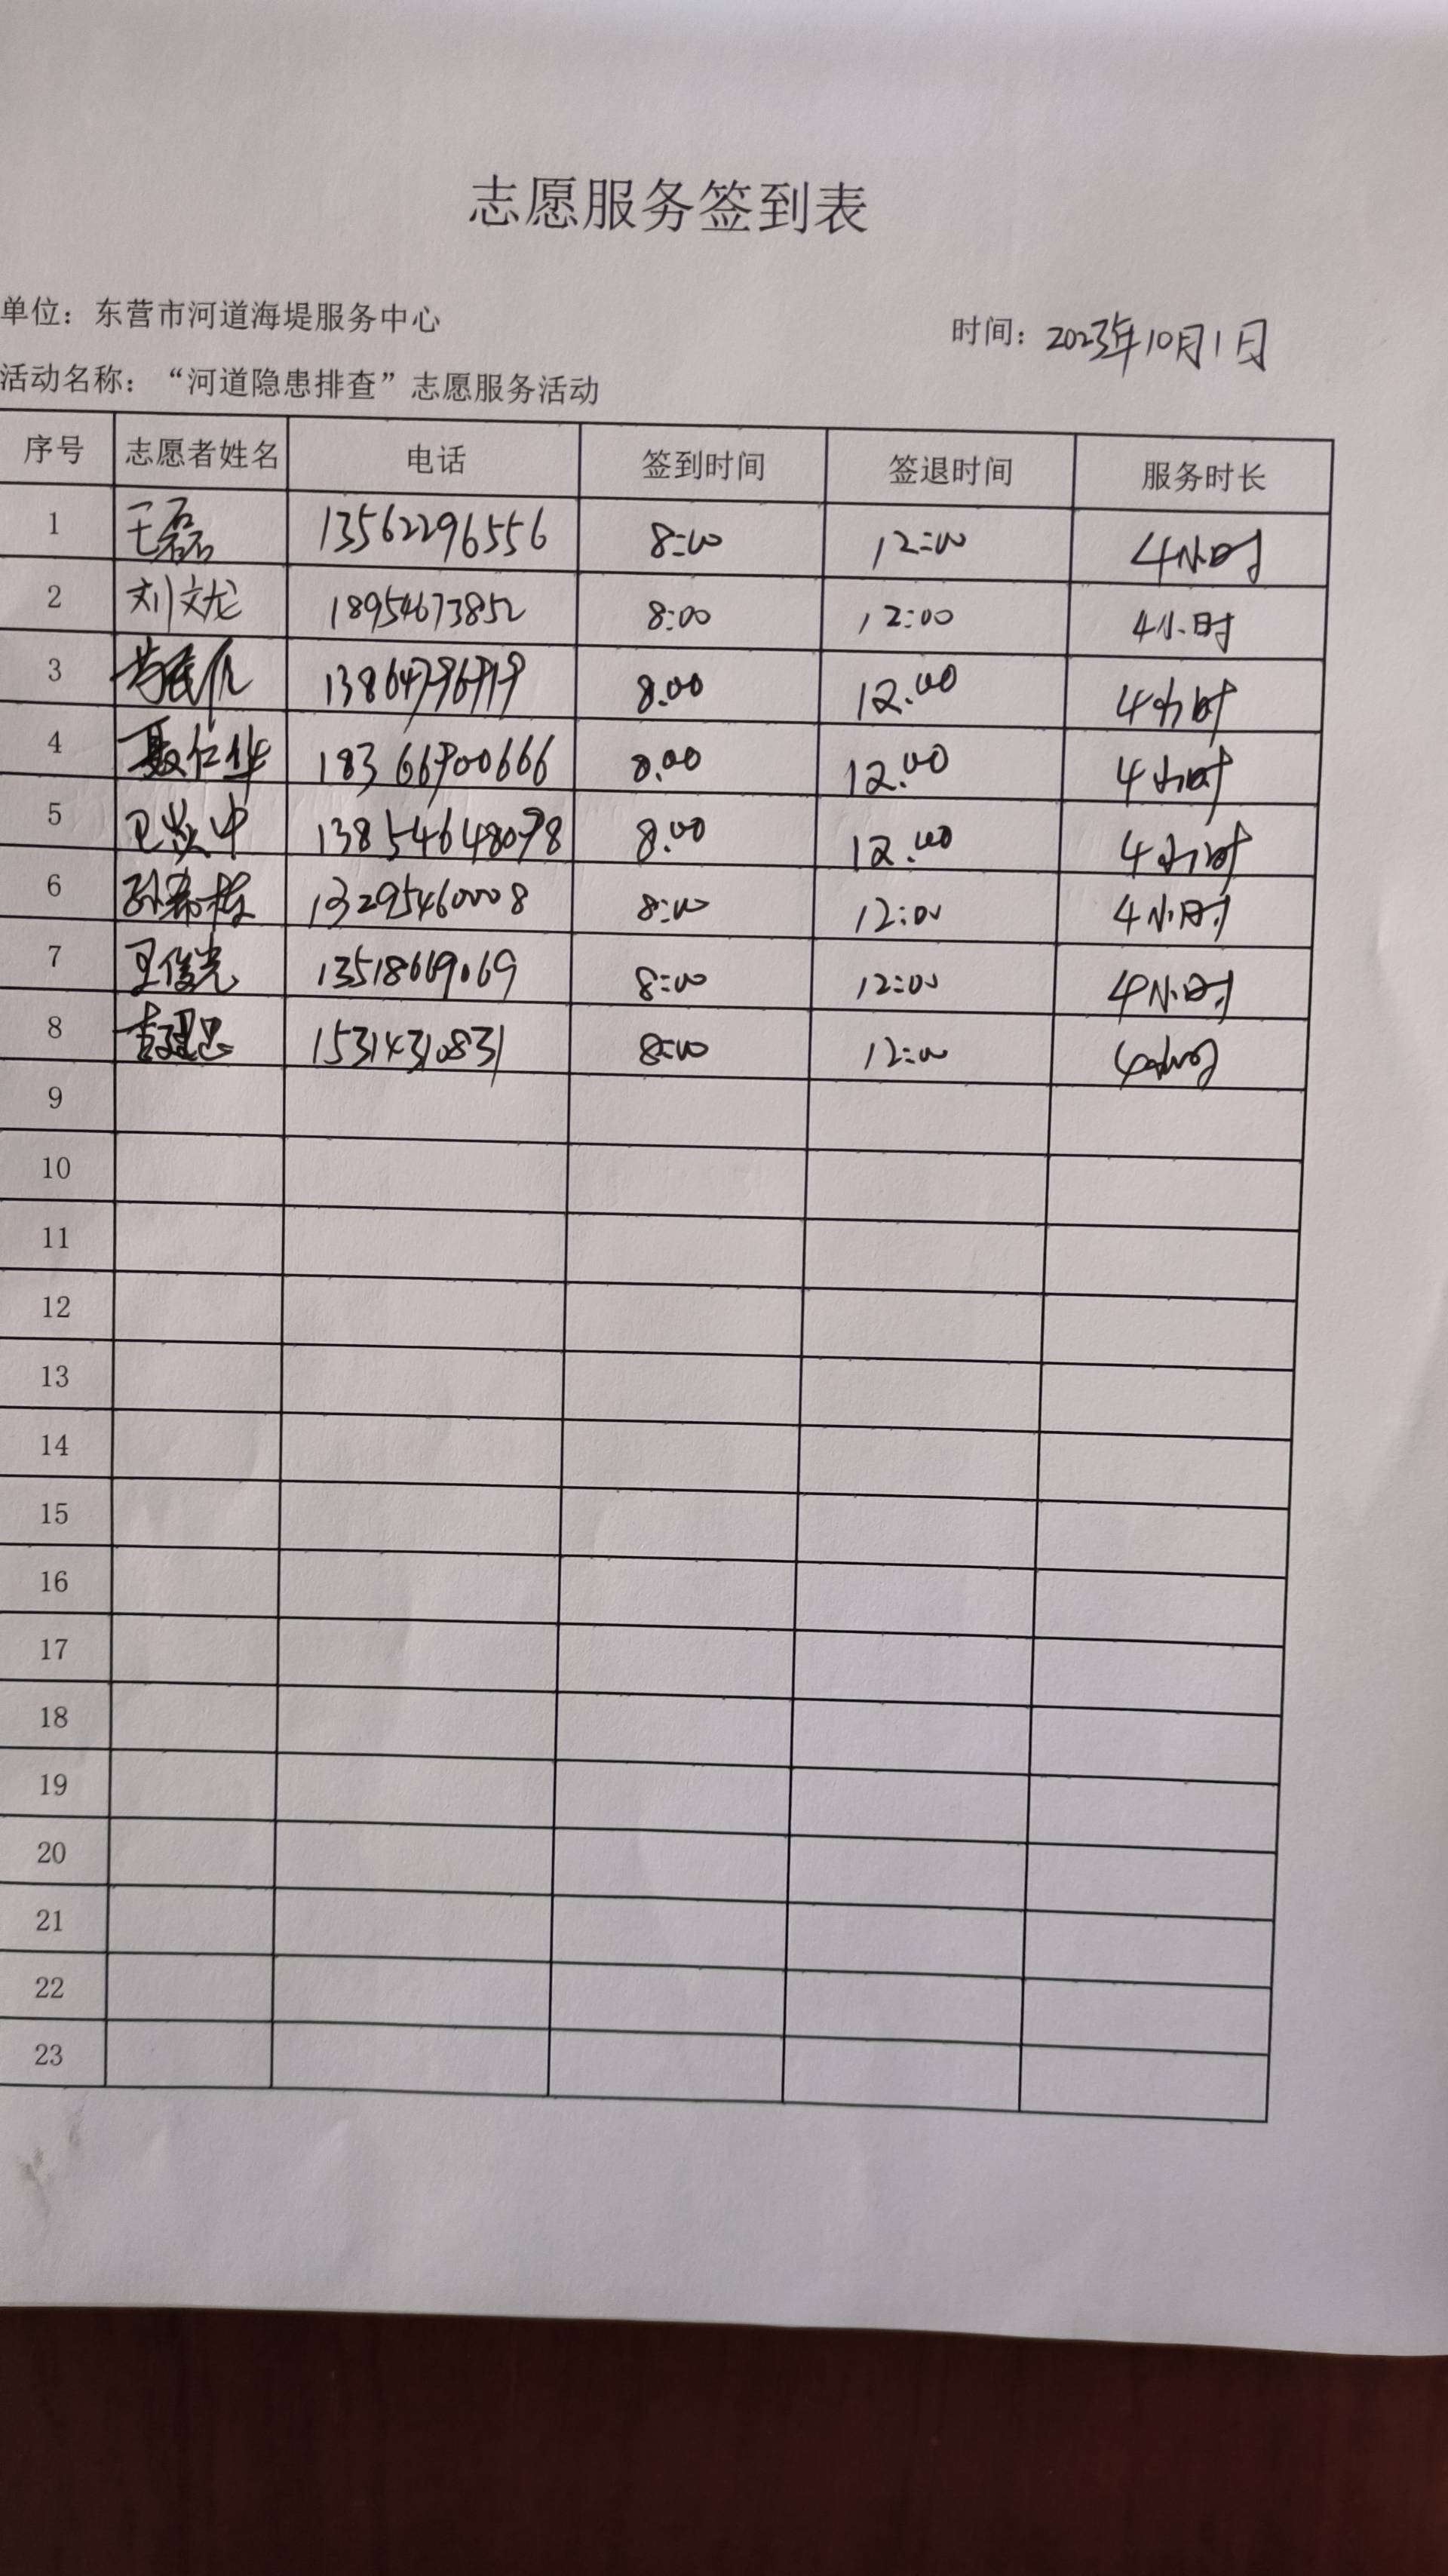 志愿服务签到表
单位：东营市河道海堤服务中心 时间：2023年10月1日
活动名称：“河道隐患排查”志愿服务活动
序号 志愿者姓名 电话 签到时间 签退时间 服务时长
1 王磊 13562296556 8:00 12:00 4小时
2 刘文龙 18954673852 8:00 12:00 4小时
3 8.00 12.00 4小时
4 聂仁华 18366900666 8.00 12.00 4小时
5 13854648098 8.00 12.00 4小时
6 13295460008 8:00 12:00 4小时
7 王俊光 13518669069 8:00 12:00 4小时
8 15314310831 8:00 12:00 4小时
9
10
11
12
13
14
15
16
17
18
19
20
21
22
23